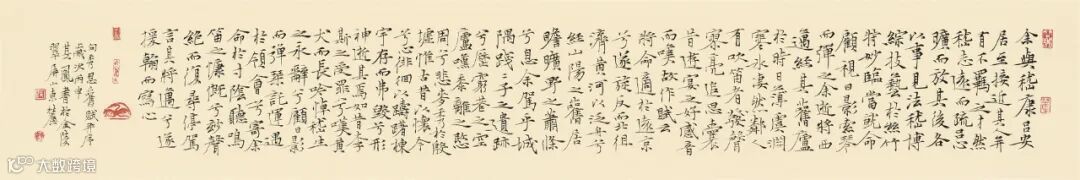 余與嵇康呂安
居止接近其人并
有不羈之才然
嵇志遠而疏呂心
曠而放其後各
以事見法嵇博
綜技藝於絲竹
特妙臨當就命
顧視日影索琴
而彈之余逝將西
邁經其舊廬
於時日薄虞淵
寒冰凄然鄰人
有吹笛者發聲
寥亮追思曩
昔遊宴之好感音
而嘆故作賦云
將命適於遠京
兮遂旋反而北徂
濟黃河以泛舟兮
經山陽之舊居
瞻曠野之蕭條
兮息余駕乎城
隅踐二子之遺跡
兮歷窮巷之空
廬嘆黍離之愍
周兮悲麥秀於殷
墟惟古昔以懷今
兮心徘徊以躊躇棟
宇存而弗毀兮形
神逝其焉如昔李
斯之受罪兮嘆黃
犬而長吟悼嵇生
之永辭兮顧日影
而彈琴託運遇
於領會兮寄余
命於寸陰聽鳴
笛之慷慨兮妙聲
絕而復尋停駕
言其將邁兮遂
援翰而寫心
向秀思舊賦并序
歲次丙申
其鳳書於金陵
翠屏山東麓
大数跨境